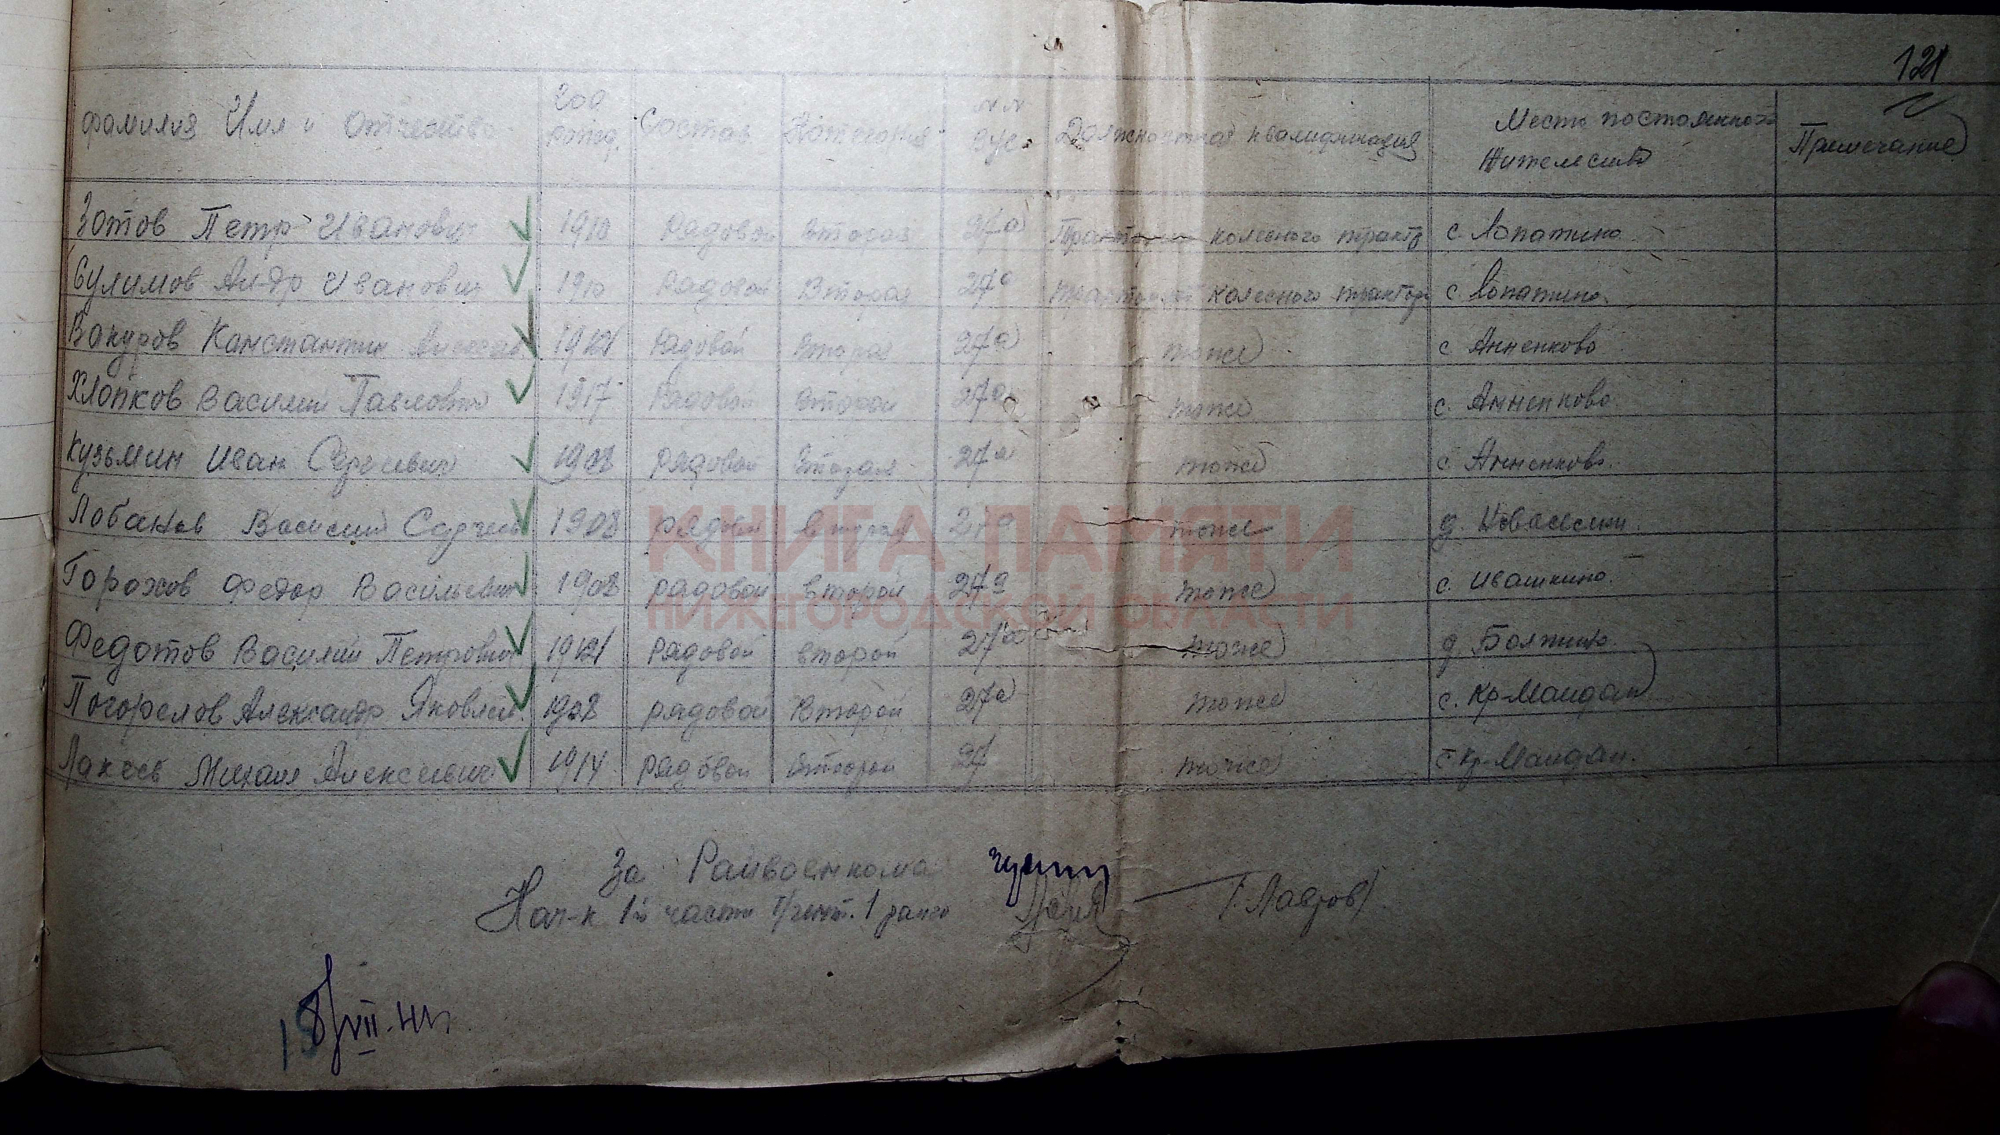 121
Фамилия Имя и Отчество Год рожд. Состав Категория №№ ВУС. Должностная квалификация Место постоянного жительства Примечание
Зотов Петр Иванович 1910 Рядовой Второй 27а колесного с. Лопатино
Сулимов Ал-др Иванович 1910 Рядовой Вторая 27а колесного трактор с Лопатино.
Вакуров Константин 1912 Рядовой Вторая 27а тоже с Анненково
Хлопков Василий Павлович 1917 Рядовой Второй 27а тоже с. Анненково
Кузьмин Иван Сергеевич 1908 Рядовой Вторая 27а тоже с. Анненково.
Лобанов Василий 1908 рядовой 27а тоже д.
Горохов Федор Васильевич 1908 рядовой второй 27а тоже с. Ивашкино.
Федотов Василий Петрович 1912 Рядовой второй 27а тоже д. Болтино.
Погорелов Александр Яковлев. 1908 рядовой Второй 27а тоже с. Кр-Майдан
Лакеев Михаил Алексеевич 1914 рядовой второй 27 тоже с Кр-Майдан.
КНИГА ПАМЯТИ
НИЖЕГОРОДСКОЙ ОБЛАСТИ
За Райвоенкома
Нач-к 1й части 1 ранга /Лавров/.
VII.41г.